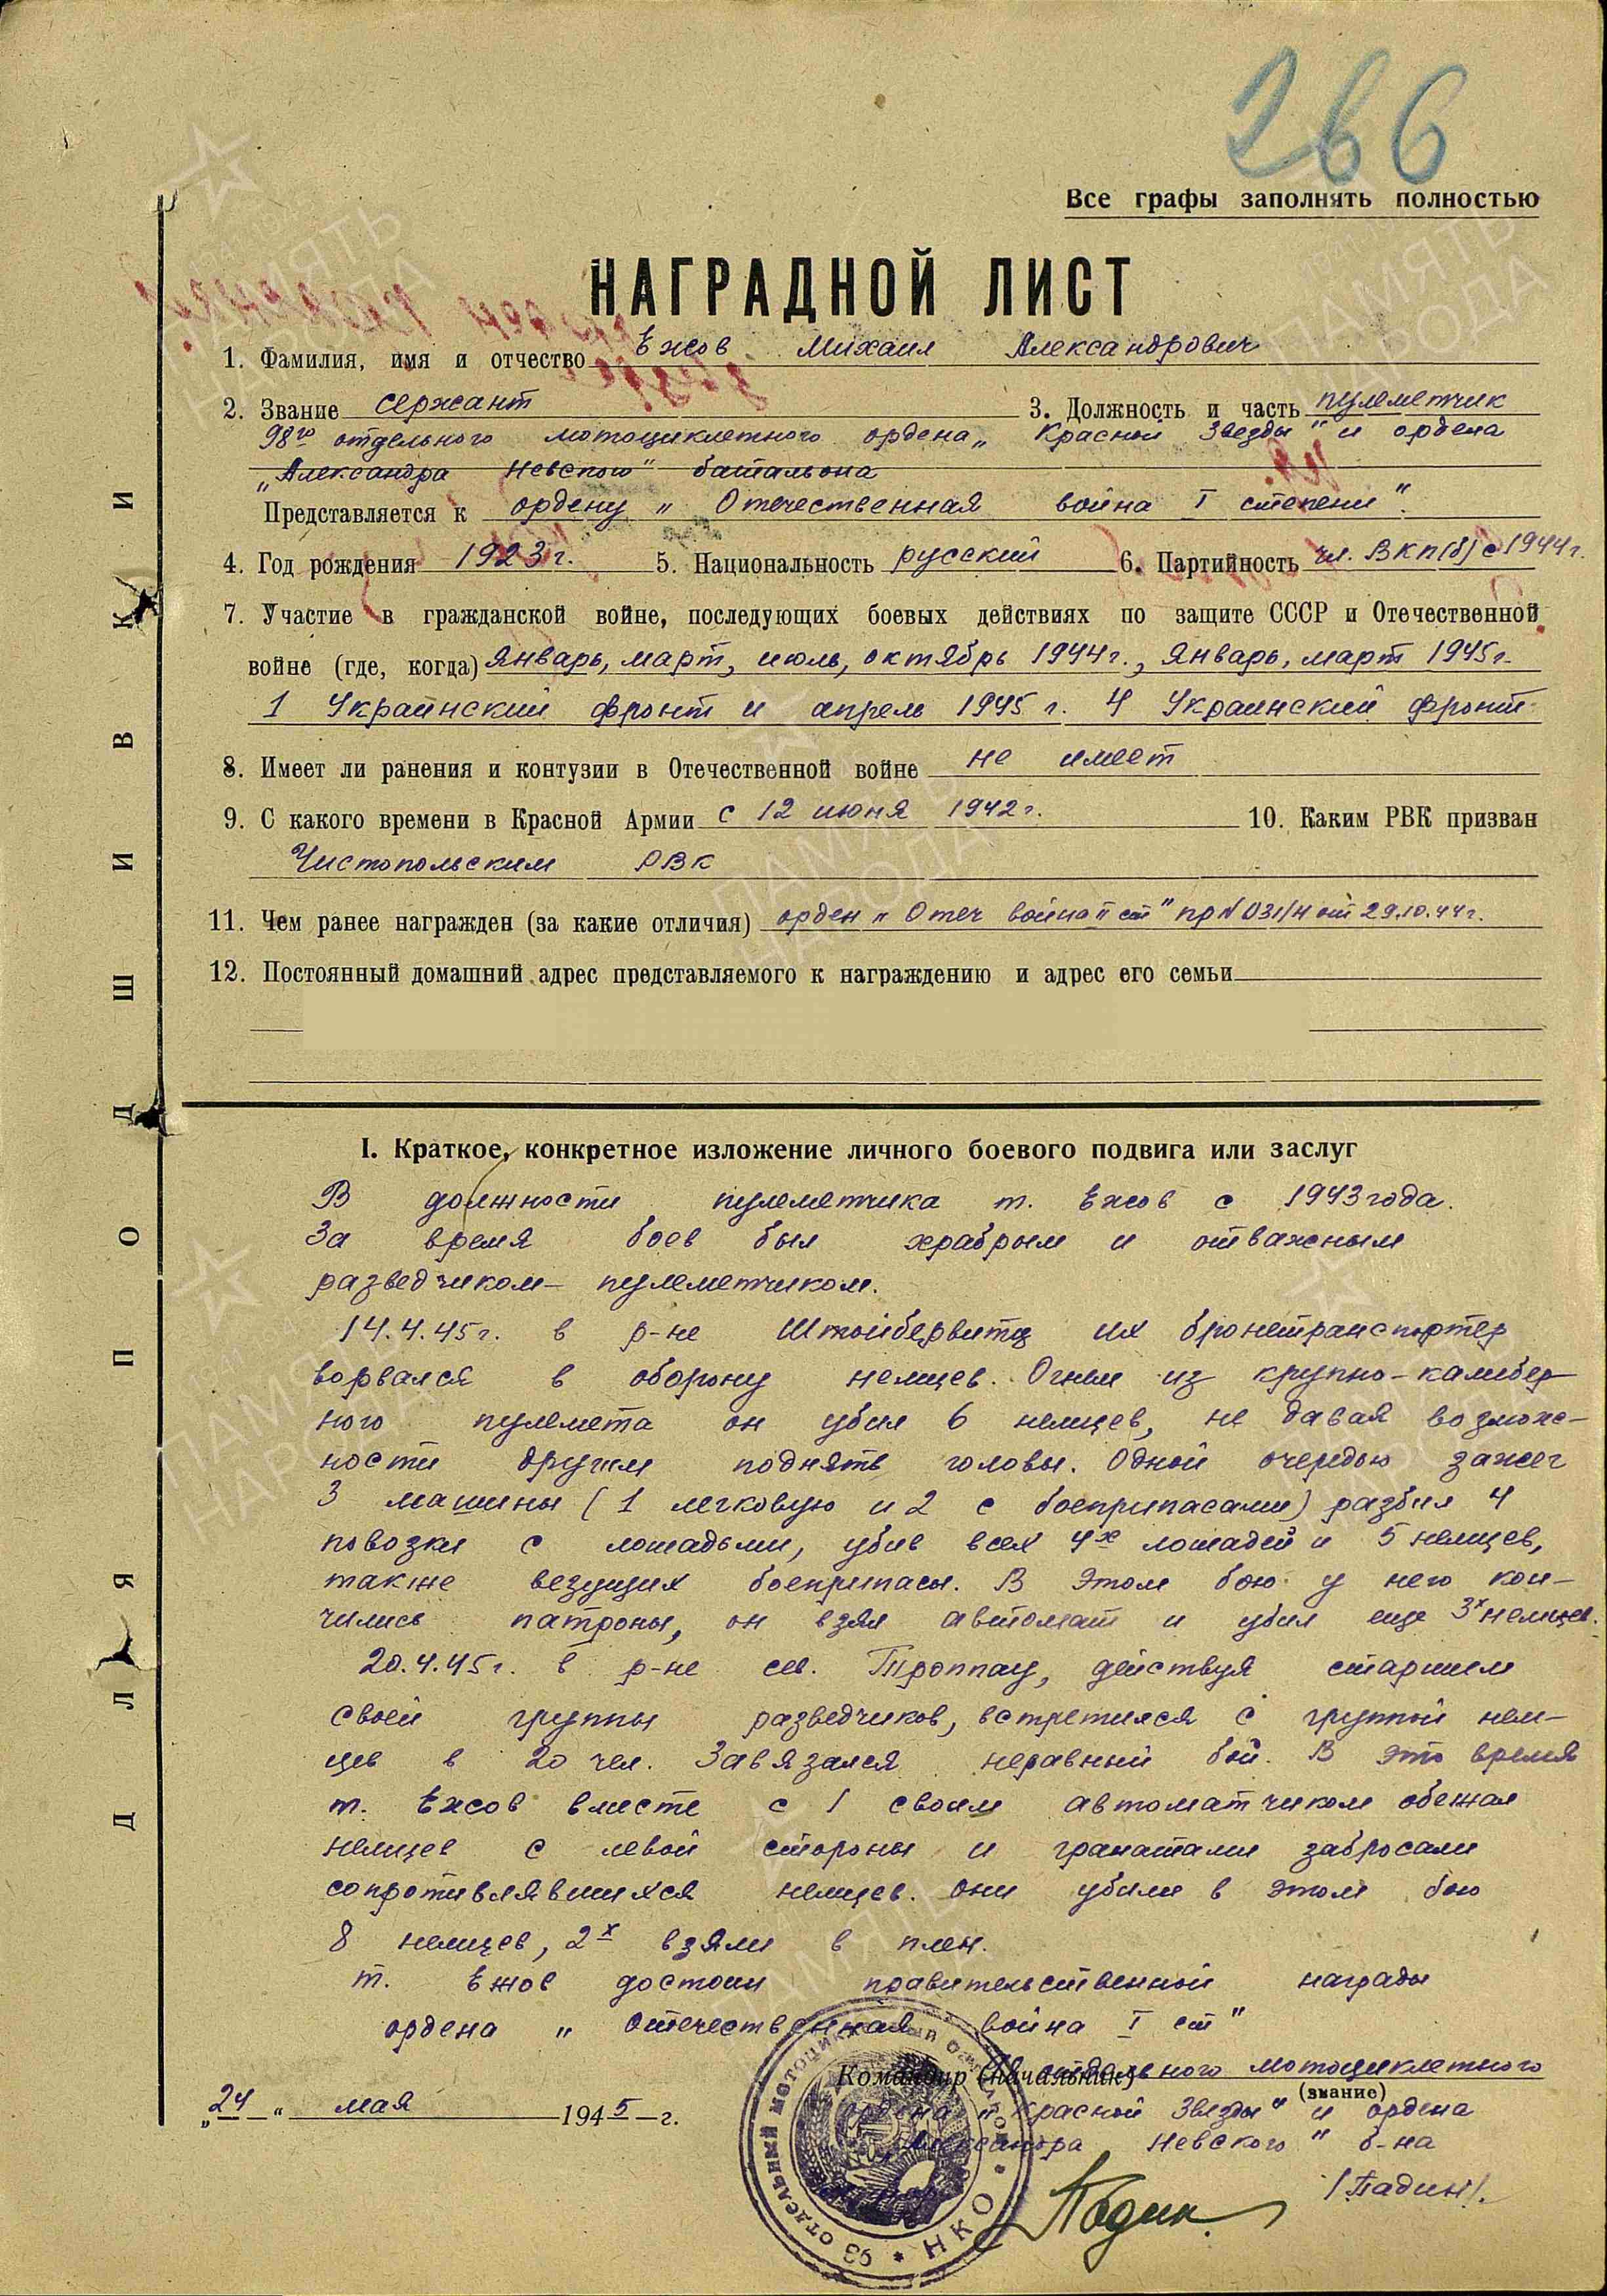 266
Все графы заполнять полностью
НАГРАДНОЙ ЛИСТ
1. Фамилия, имя и отчество Ежов Михаил Александрович
2. Звание сержант 3. Должность и часть пулеметчик
98го отдельного мотоциклетного ордена „Красной Звезды" и ордена
„Александра Невского" батальона
Представляется к ордену „Отечественная война I степени".
4. Год рождения 1923 г. 5. Национальность русский 6. Партийность чл. ВКП(б) с 1944 г.
7. Участие в гражданской войне, последующих боевых действиях по защите СССР и Отечественной
войне (где, когда) январь, март, июль, октябрь 1944 г., январь, март 1945 г.
1 Украинский фронт и апрель 1945 г. 4 Украинский фронт.
8. Имеет ли ранения и контузии в Отечественной войне не имеет
9. С какого времени в Красной Армии с 12 июня 1942 г. 10. Каким РВК призван
Чистопольским РВК
11. Чем ранее награжден (за какие отличия) орден „Отеч война II ст" пр N 031/н от 29.10.44 г.
12. Постоянный домашний адрес представляемого к награждению и адрес его семьи
I. Краткое, конкретное изложение личного боевого подвига или заслуг
В должности пулеметчика т. Ежов с 1943 года.
За время боев был храбрым и отважным
разведчиком- пулеметчиком.
14.4.45 г. в р-не Штойбервитц их бронетранспортер
ворвался в оборону немцев. Огнем из крупно-калибер-
ного пулемета он убил 6 немцев, не давая возмож-
ности другим поднять головы. Одной очередью зажег
3 машины (1 легковую и 2 с боеприпасами) разбил 4
повозки с лошадьми, убив всех 4х лошадей и 5 немцев,
также везущих боеприпасы. В этом бою у него кон-
чились патроны, он взял автомат и убил еще 3х немцев.
20.4.45 г. в р-не сев. Троппау, действуя старшим
своей группы разведчиков, встретился с группой нем-
цев в 20 чел. Завязался неравный бой. В это время
т. Ежов вместе с 1 своим автоматчиком обежал
немцев с левой стороны и гранатами забросали
сопротивлявшихся немцев. Они убили в этом бою
8 немцев, 2х взяли в плен.
т. Ежов достоин правительственной награды
ордена „Отечественная война I ст"
Командир (начальник) отдельного мотоциклетного
(звание)
„24" мая 1945 г.
ордена „Красной Звезды" и ордена
„Александра Невского" б-на
/Падин/.
ДЛЯ ПОДШИВКИ
98 ОТДЕЛЬНЫЙ МОТОЦИКЛЕТНЫЙ * НКО *
ПАМЯТЬ НАРОДА